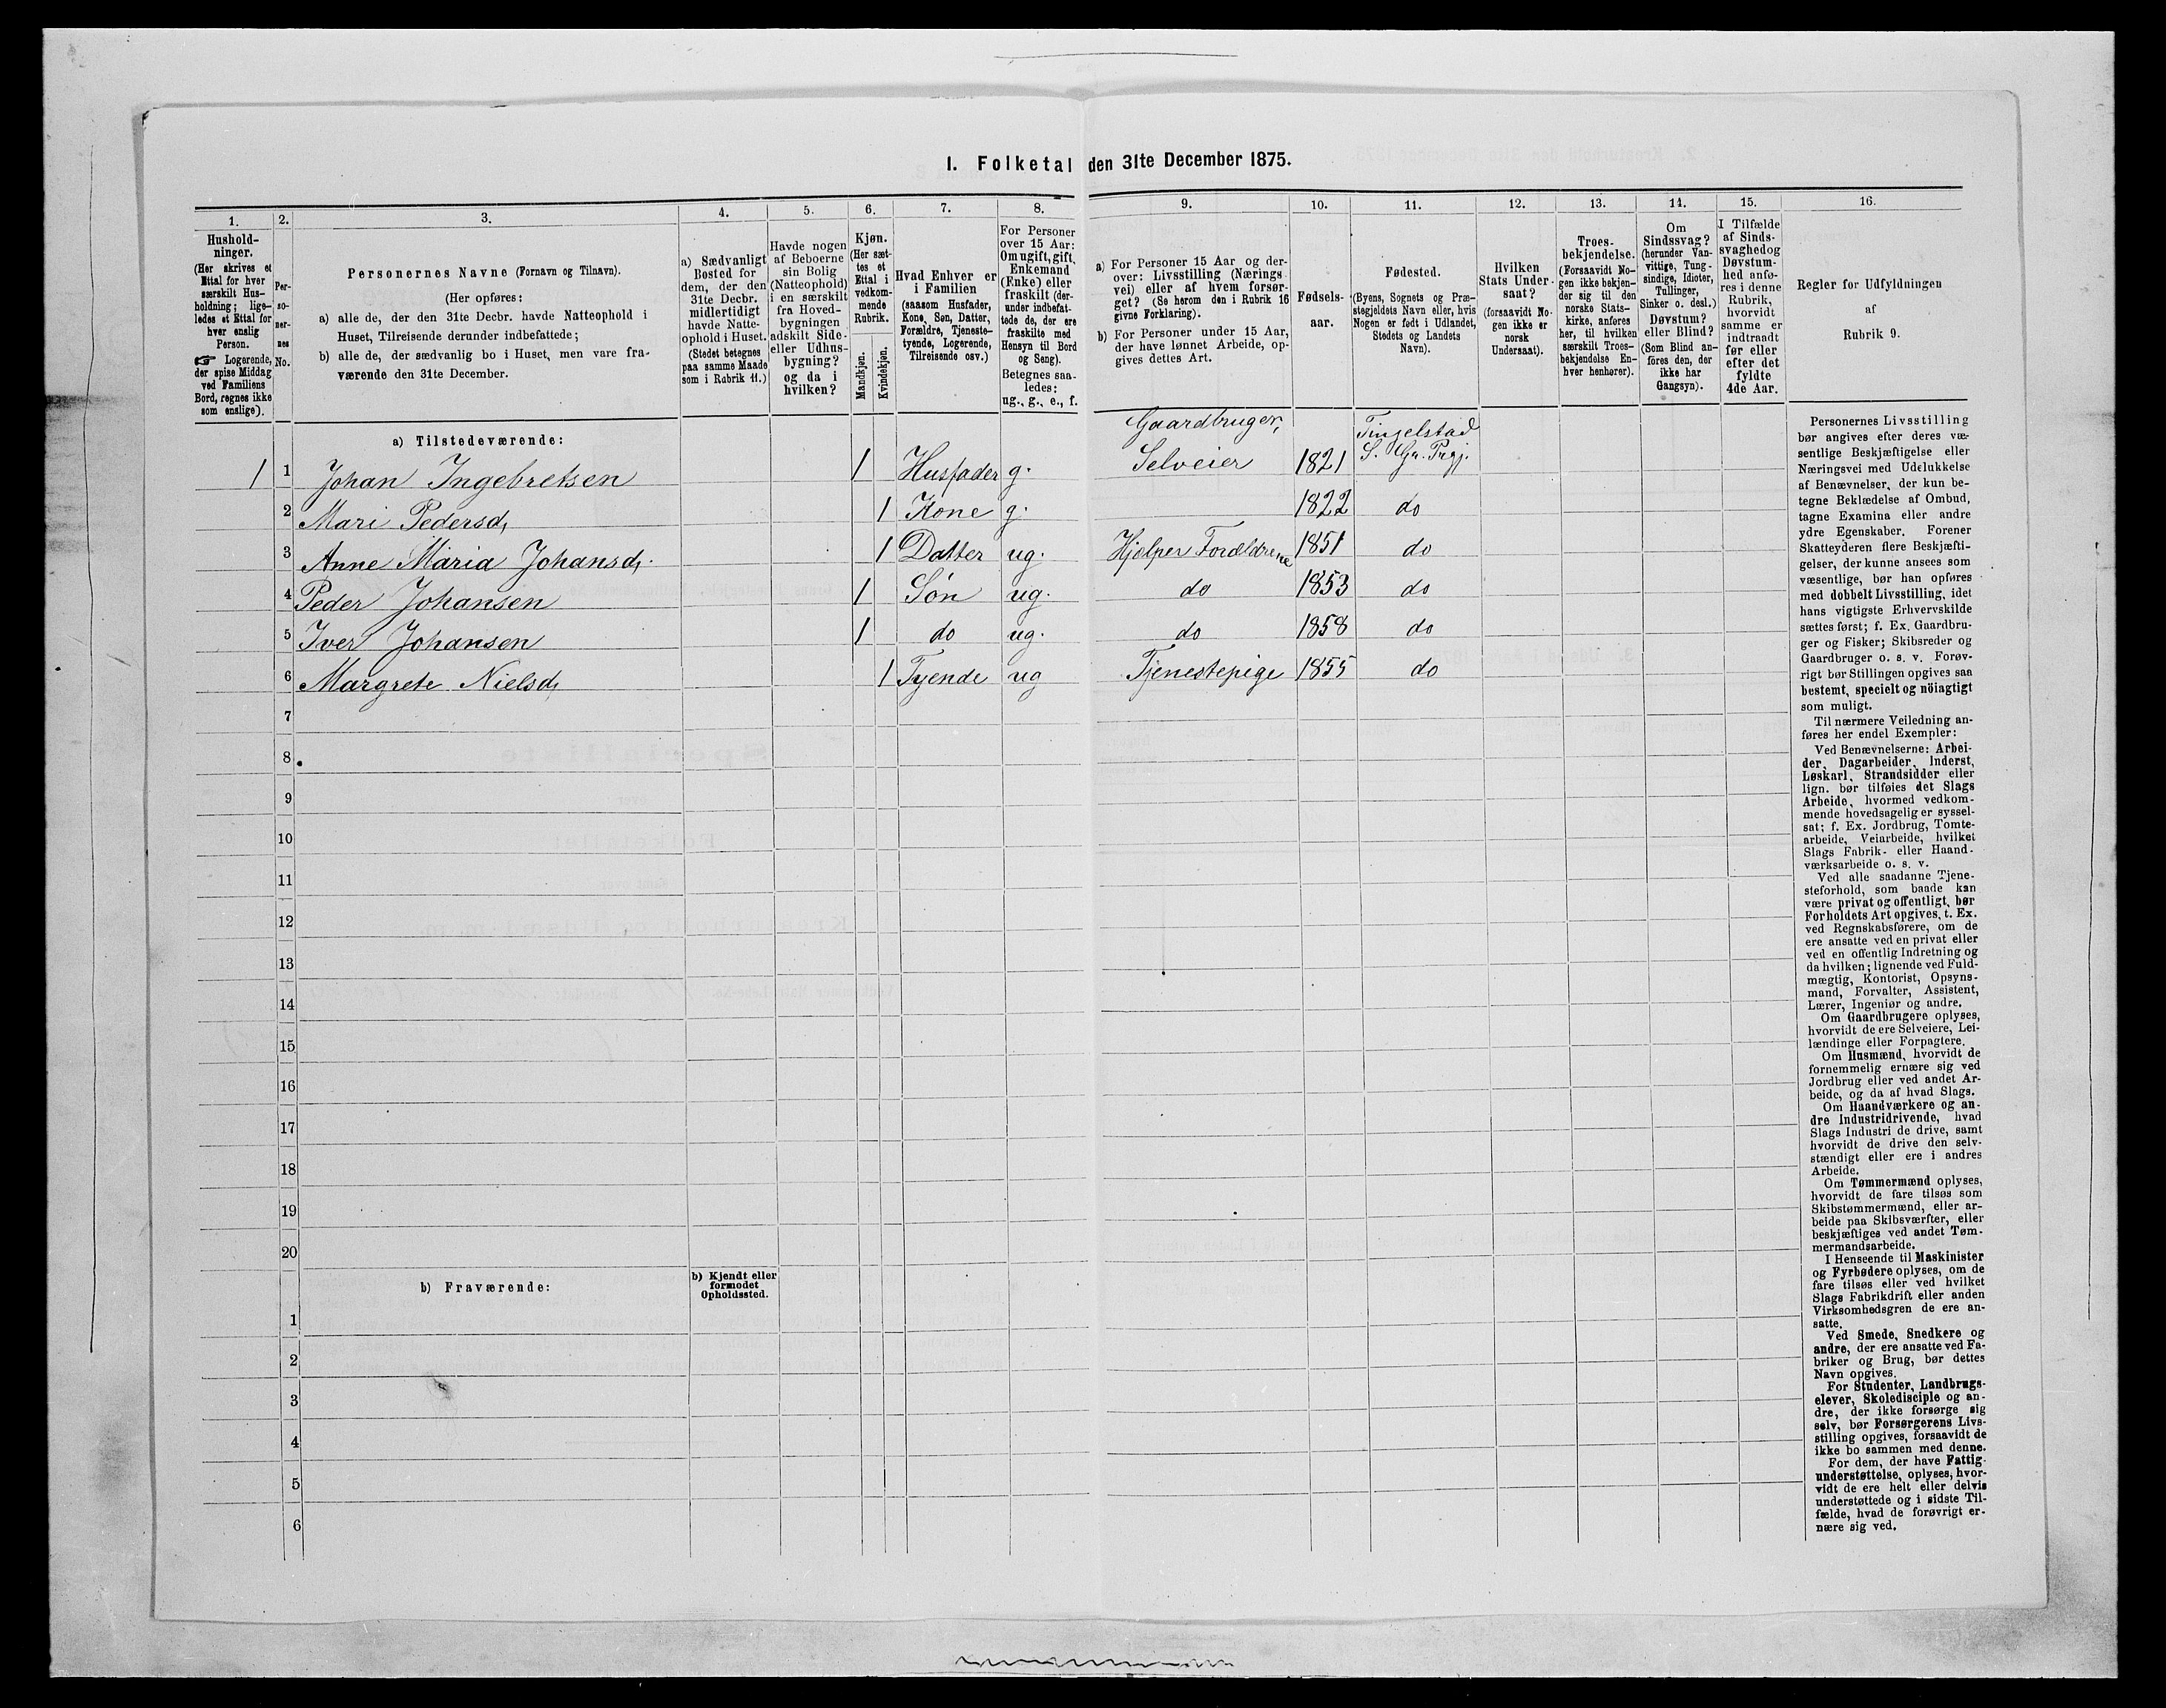 I. Folketal den 31te December 1875.
1.
2.
3.
4.
5.
6.
7.
8.
9.
10.
11.
12.
13.
14.
15.
16.
Hushold-
ninger.
(Her skrives et
Ettal for hver
særskilt Hus-
holdning; lige-
ledes et Ettal for
hver enslig
Person.
☞ Logerende,
der spise Middag
ved Familiens
Bord, regnes ikke
som enslige).
Per-
so-
ner-
nes
No.
Personernes Navne (Fornavn og Tilnavn).
(Her opføres:
a) alle de, der den 31te Decbr. havde Natteophold i
Huset, Tilreisende derunder indbefattede;
b) alle de, der sædvanlig bo i Huset, men vare fra-
værende den 31te December.
a) Sædvanligt
Bosted for
dem, der den
31te Decbr.
midlertidigt
havde Natte-
ophold i Huset.
(Stedet betegnes
paa samme Maade
som i Rubrik 11.)
Havde nogen
af Beboerne
sin Bolig
(Natteophold)
i en særskilt
fra Hoved-
bygningen
adskilt Side-
eller Udhus-
bygning?
og da i
hvilken?
Kjøn.
(Her sæt-
tes et
Ettal i
vedkom-
mende
Rubrik.
Mandkjøn.
Kvindekjøn.
Hvad Enhver er
i Familien
(saasom Husfader,
Kone, Søn, Datter,
Forældre, Tjeneste-
tyende, Logerende,
Tilreisende osv.)
For Personer
over 15 Aar:
Om ugift, gift,
Enkemand
(Enke) eller
fraskilt (der-
under indbefat-
tede de, der ere
fraskilte med
Hensyn til Bord
og Seng).
Betegnes saa-
ledes:
ug., g., e., f.
a) For Personer 15 Aar og der-
over: Livsstilling (Nærings-
vei) eller af hvem forsør-
get? (Se herom den i Rubrik 16
givne Forklaring).
b) For Personer under 15 Aar,
der have lønnet Arbeide, op-
gives dettes Art.
Fødsels-
aar.
Fødested.
(Byens, Sognets og Præ-
stegjeldets Navn eller, hvis
Nogen er født i Udlandet,
Stedets og Landets
Navn).
Hvilken
Stats Under-
saat?
(forsaavidt No-
gen ikke er
norsk
Undersaat).
Troes-
bekjendelse.
(Forsaavidt No-
gen ikke bekjen-
der sig til den
norske Stats-
kirke, anføres
her, til hvilken
særskilt Troes-
bekjendelse En-
hver henhører).
Om
Sindssvag?
(herunder Van-
vittige, Tung-
sindige, Idioter,
Tullinger,
Sinker o. desl.)
Døvstum?
eller Blind?
(Som Blind an-
føres den, der
ikke har
Gangsyn).
I Tilfælde
af Sinds-
svaghed og
Døvstum-
hed anfø-
res i denne
Rubrik,
hvorvidt
samme er
indtraadt
før eller
efter det
fyldte
4de Aar.
Regler for Udfyldningen
af
Rubrik 9.
a) Tilstedeværende:
Gaardbruger, Tingelstad
1 1 Johan Ingebretsen 1 Husfader g. Selveier 1821 S. Gr. Prgj.
2 Mari Pedersd, 1 Kone g. 1822 do
3 Anne Maria Johansd, 1 Datter ug. Hjelper Forældrene 1851 do
4 Peder Johansen 1 Søn ug. do 1853 do
5 Iver Johansen 1 do ug. do 1858 do
6 Margrete Nielsd, 1 Tyende ug Tjenestepige 1855 do
7
8
9
10
11
12
13
14
15
16
17
18
19
20
b) Fraværende:
b) Kjendt eller
formodet
Opholdssted.
1
2
3
4
5
6
Personernes Livsstilling
bør angives efter deres væ-
sentlige Beskjæftigelse eller
Næringsvei med Udelukkelse
af Benævnelser, der kun be-
tegne Beklædelse af Ombud,
tagne Examina eller andre
ydre Egenskaber. Forener
Skatteyderen flere Beskjæfti-
gelser, der kunne ansees som
væsentlige, bør han opføres
med dobbelt Livsstilling, idet
hans vigtigste Erhvervskilde
sættes først; f. Ex. Gaardbru-
ger og Fisker; Skibsreder og
Gaardbruger o. s. v. Forøv-
rigt bør Stillingen opgives saa
bestemt, specielt og nöiagtigt
som muligt.
Til nærmere Veiledning an-
føres her endel Exempler:
Ved Benævnelserne: Arbei-
der, Dagarbeider, Inderst,
Løskarl, Strandsidder eller
lign. bør tilføies det Slags
Arbeide, hvormed vedkom-
mende hovedsagelig er syssel-
sat; f. Ex. Jordbrug, Tomte-
arbeide, Veiarbeide, hvilket
Slags Fabrik- eller Haand-
værksarbeide o. s. v.
Ved alle saadanne Tjene-
steforhold, som baade kan
være privat og offentligt, bør
Forholdets Art opgives, t. Ex.
ved Regnskabsførere, om de
ere ansatte ved en privat eller
ved en offentlig Indretning og
da hvilken; lignende ved Fuld-
mægtig, Kontorist, Opsyns-
mand, Forvalter, Assistent,
Lærer, Ingeniør og andre.
Om Gaardbrugere oplyses,
hvorvidt de ere Selveiere, Lei-
lændinge eller Forpagtere.
Om Husmænd, hvorvidt de
fornemmelig ernære sig ved
Jordbrug eller ved andet Ar-
beide, og da af hvad Slags.
Om Haandværkere og an-
dre Industridrivende, hvad
Slags Industri de drive, samt
hvorvidt de drive den selv-
stændigt eller ere i andres
Arbeide.
Om Tømmermænd oplyses,
hvorvidt de fare tilsøs som
Skibstømmermænd, eller ar-
beide paa Skibsværfter, eller
beskjæftiges ved andet Tøm-
mermandsarbeide.
I Henseende til Maskinister
og Fyrbødere oplyses, om de
fare tilsøs eller ved hvilket
Slags Fabrikdrift eller anden
Virksomhedsgren de ere an-
satte.
Ved Smede, Snedkere og
andre, der ere ansatte ved Fa-
briker og Brug, bør dettes
Navn opgives.
For Studenter, Landbrugs-
elever, Skoledisciple og an-
dre, der ikke forsørge sig
selv, bør Forsørgerens Livs-
stilling opgives, forsaavidt de
ikke bo sammen med denne.
For dem, der have Fattig-
understøttelse, oplyses, hvor-
vidt de ere helt eller delvis
understøttede og i sidste Til-
fælde, hvad de forøvrigt er-
nære sig ved.